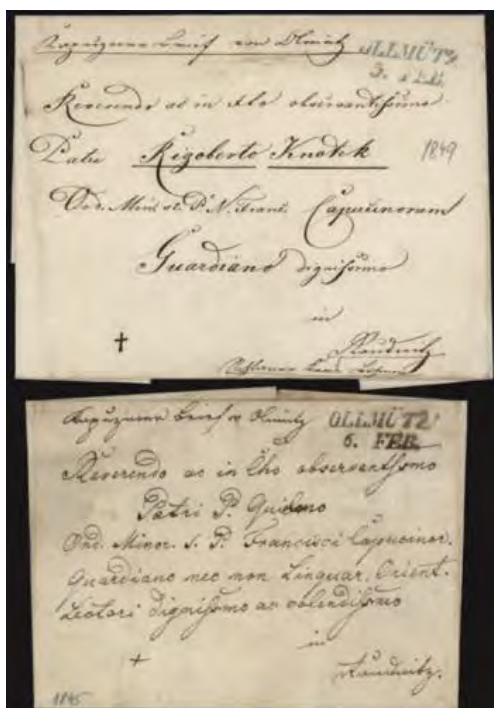 Kapuziner Brief von Olmütz
OLLMÜTZ
3.
Reverendo ac in Xto observantissimo
1849
Patri Rigoberto Knotek
Ord. Min. S. P. N. Franc. Capucinorum
Guardiano dignissimo
in
Raudnitz
Kapuziner Brief v Olmütz
OLLMÜTZ
6. FEB.
Reverendo ac in Xho observantissmo
Patri P. Guidono
Ord. Minor. S. P. Francisci Capucinor.
Guardiano nec non Linguar. Orient.
Lectori dignissmo ac colendissmo
in
Raudnitz.
1845